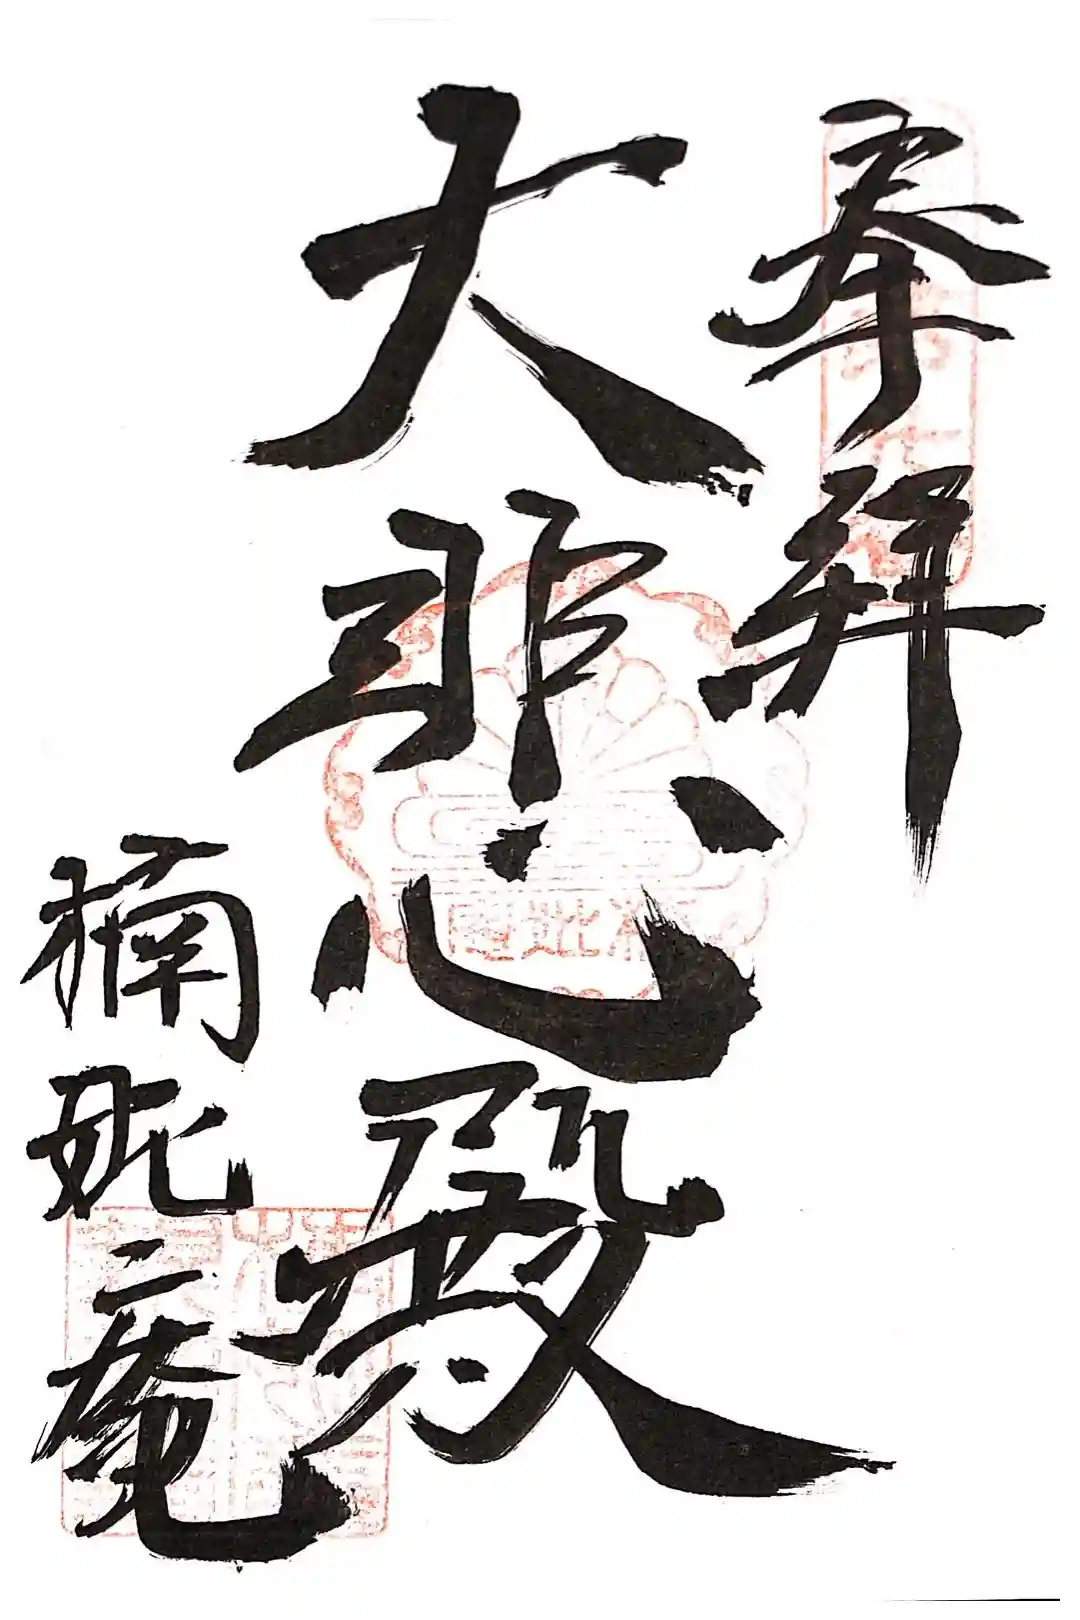 奉拝
大悲殿
楠妣庵